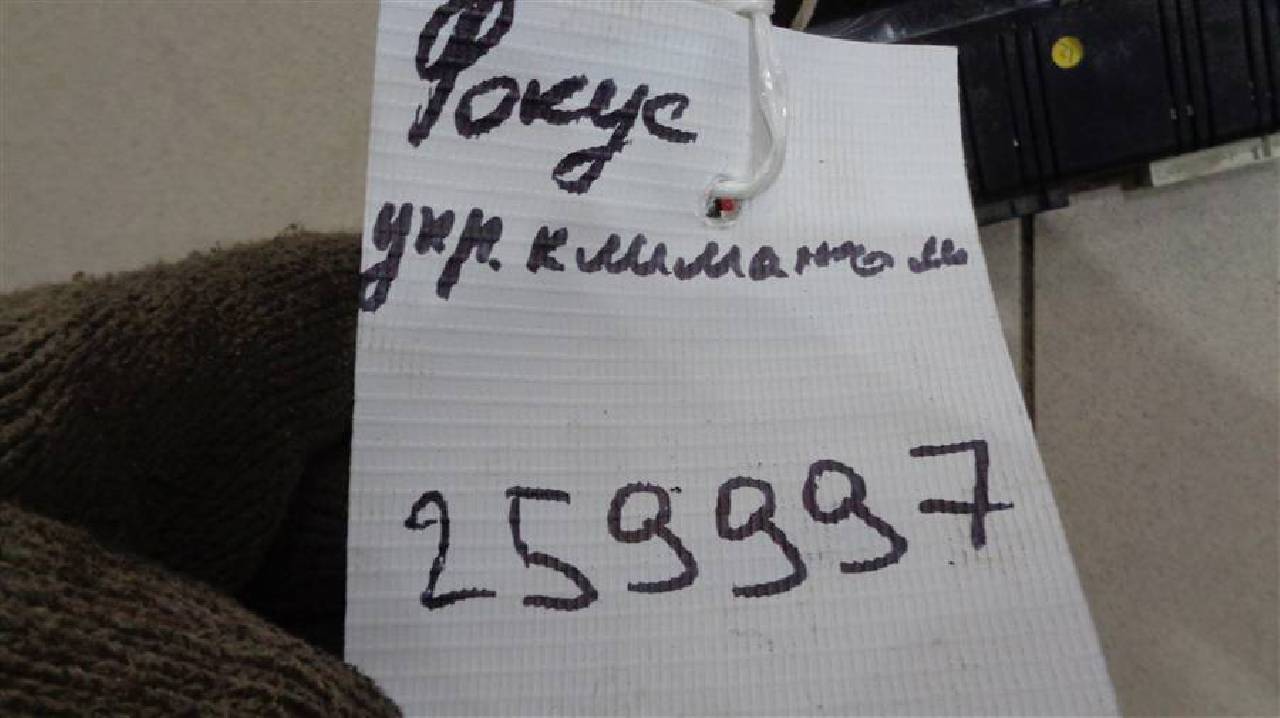 Фокус
упр. климатом
259997